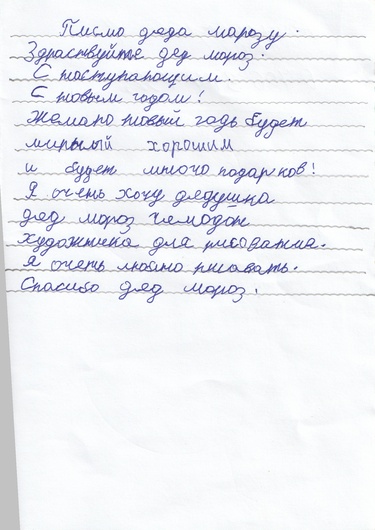 Писмо деда морозу.
Здраствуйте дед мороз.
С поступающим.
С новым годом!
Желаю новый годь будет
мирный хорошим
и будет много подарков!
Я очень хочу дедушка
дед мороз чемодон
художника для рисования.
Я очень люблю рисовать.
Спасибо дед мороз.